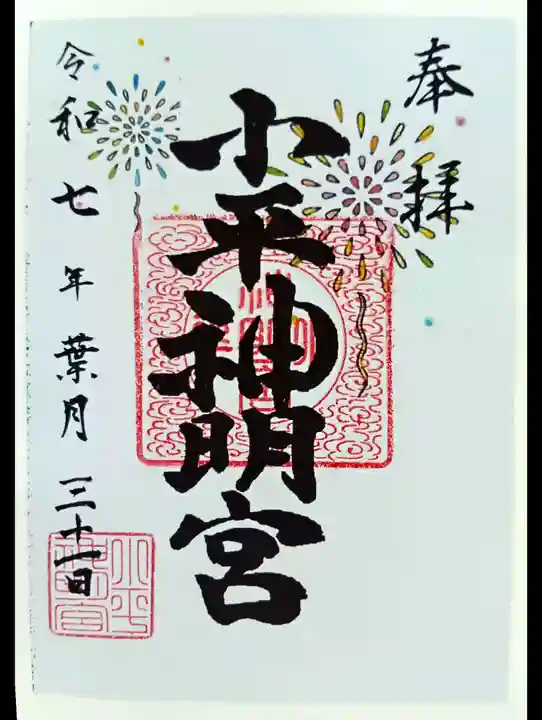 奉拝
小平神明宮
令和七年葉月三十一日